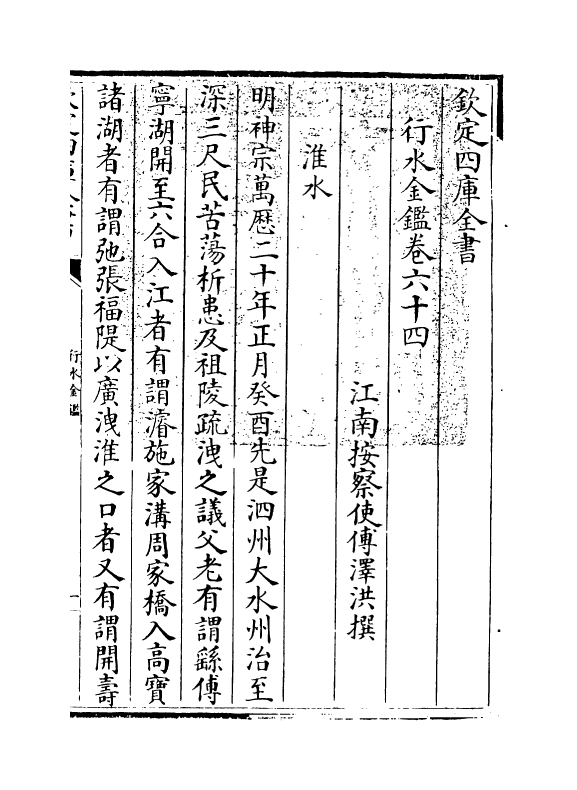 欽定四庫全書
行水金鑑卷六十四
江南按察使傅澤洪撰
淮水
明神宗萬厯二十年正月癸酉先是泗州大水州治至
深三尺民苦蕩析患及祖陵疏洩之議父老有謂繇傅
寧湖開至六合入江者有謂濬施家溝周家橋入高寶
諸湖者有謂弛張福隄以廣洩淮之口者又有謂開壽
行水金鑑
一